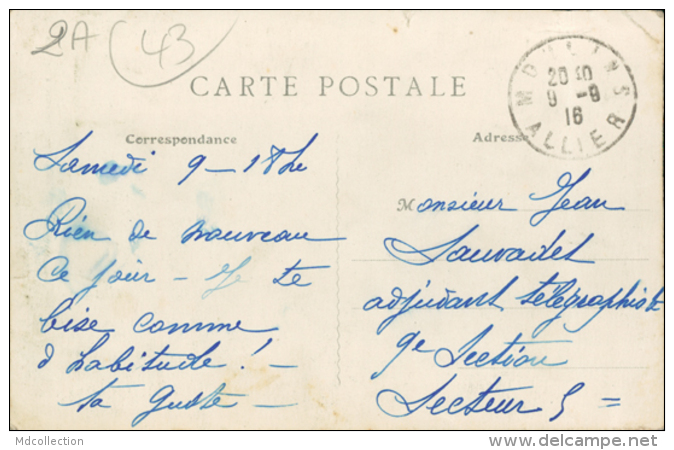 2A 43
CARTE POSTALE
MOULINS
20 30
9 -9
16
ALLIER
Correspondance
Adresse
Samedi 9 - 18h
Rien de nouveau
Ce jour - Je te
bise comme
d habitude ! -
ta Guste -
Monsieur Jean
Sauvadet
adjudant télégraphiste
9e Section
Secteur 5 =
Mdcollection
www.delcampe.net